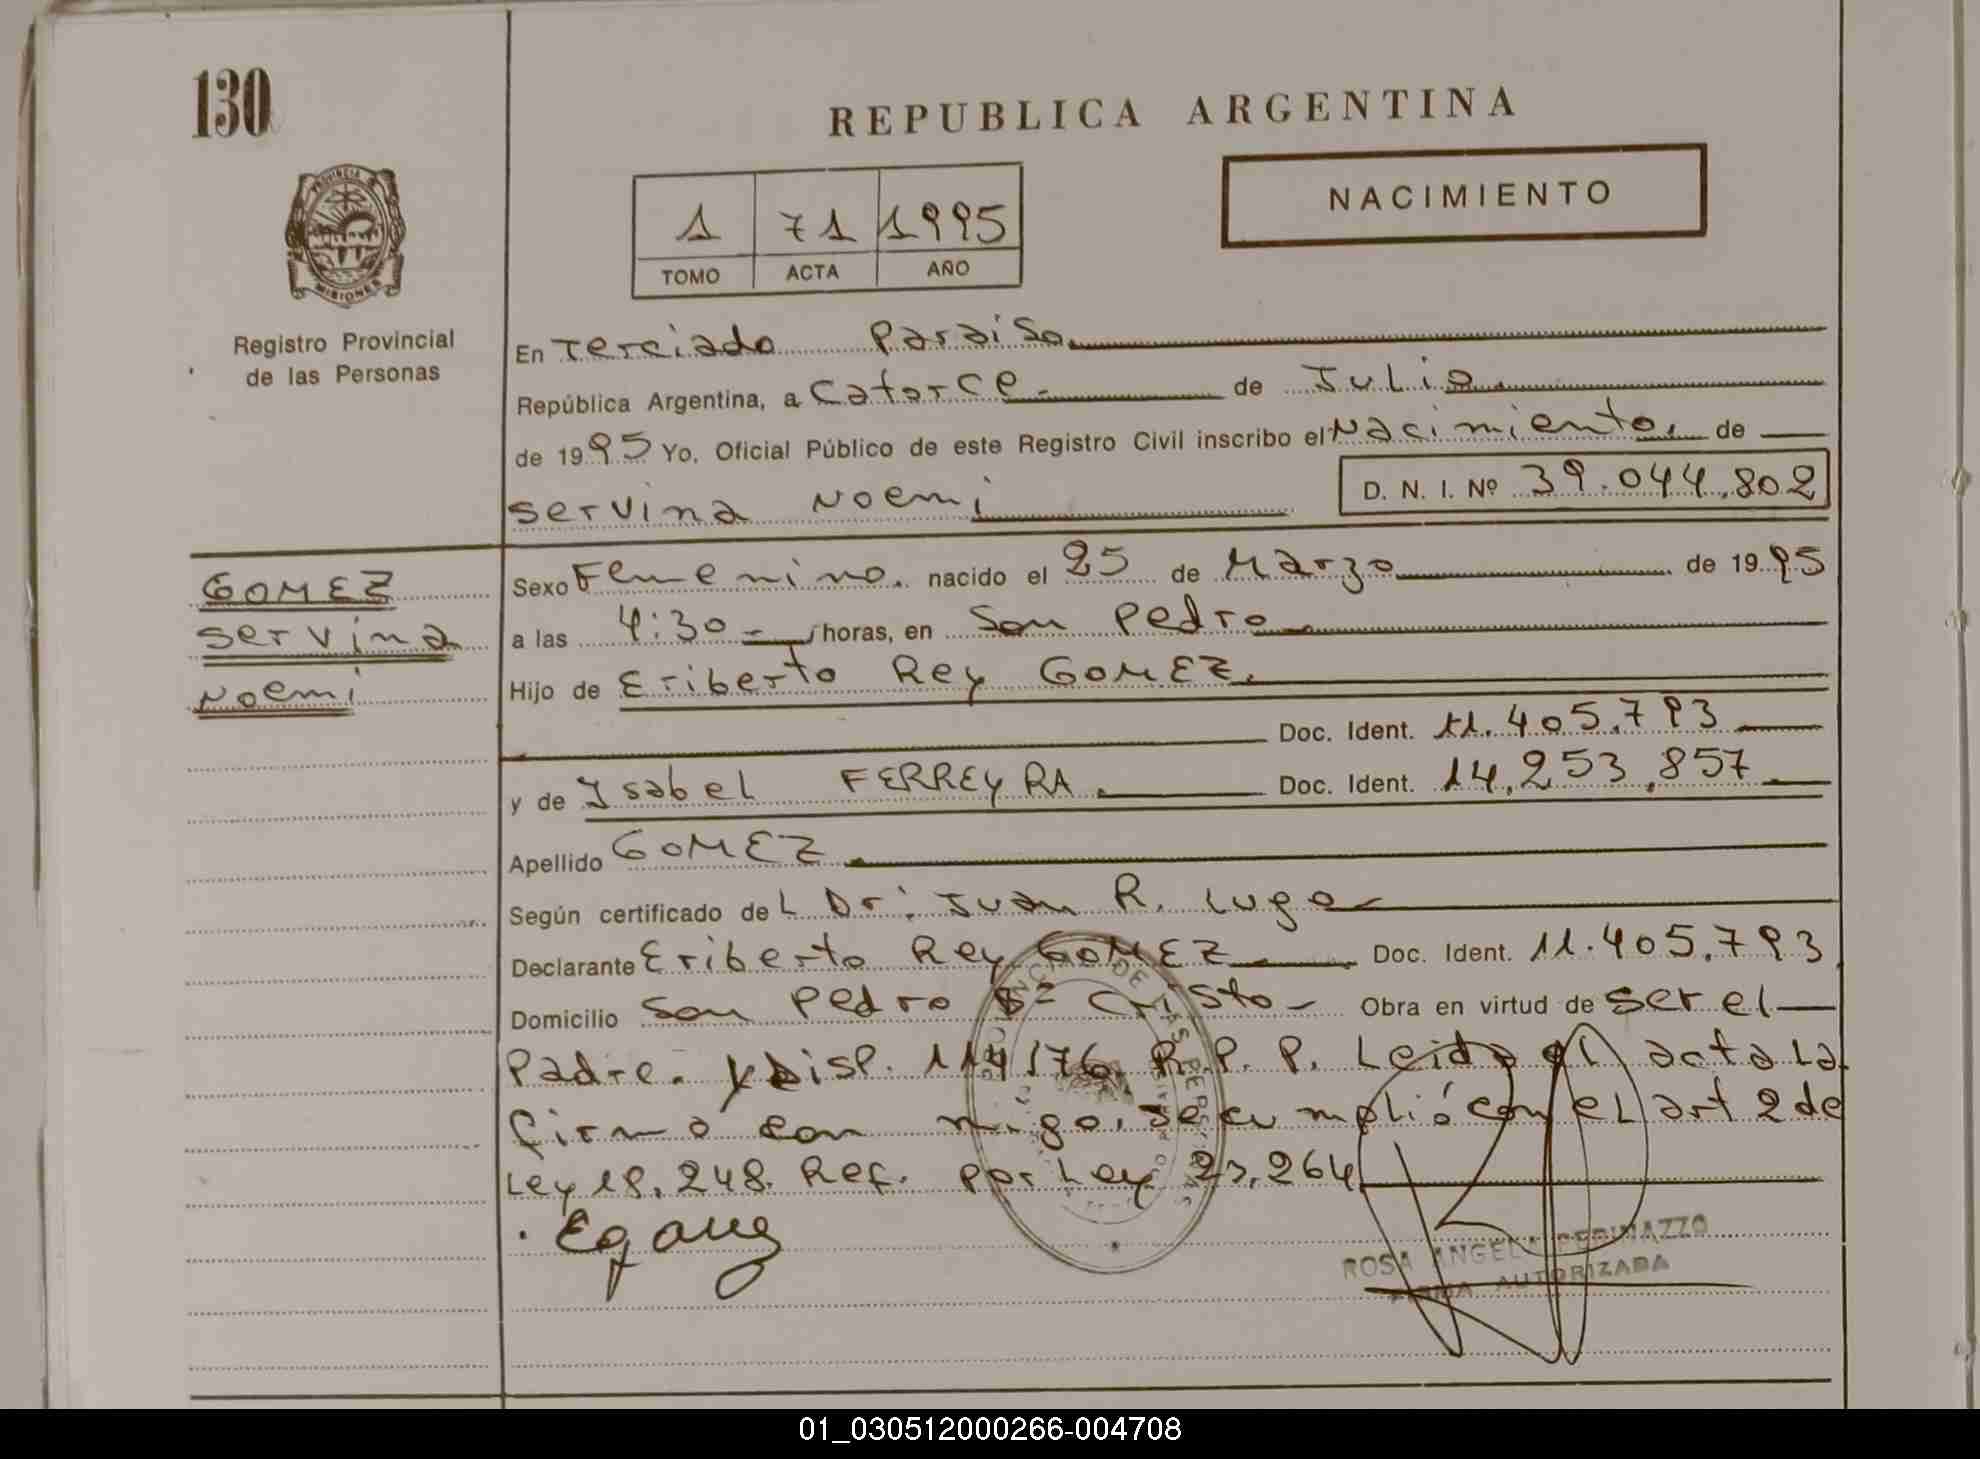 130
REPUBLICA ARGENTINA
PROVINCIA DE
MISIONES
NACIMIENTO
1 71 1995
TOMO ACTA AÑO
Registro Provincial
de las Personas
En Terciado Paraiso
República Argentina, a Catorce de Julio
de 1995 Yo, Oficial Público de este Registro Civil inscribo el Nacimiento, de
servina Noemi D. N. I. Nº 39.044.802
GOMEZ
servina
Noemi
Sexo Femenino. nacido el 25 de Marzo de 1995
a las 4:30 horas, en San Pedro
Hijo de Eriberto Rey GOMEZ.
Doc. Ident. 11.405.793
y de Ysabel FERREYRA. Doc. Ident. 14.253.857
Apellido GOMEZ
Según certificado del Dr: Juan R. Lugo
Declarante Eriberto Rey GOMEZ Doc. Ident. 11.405.793
Domicilio San Pedro Bº Cristo Obra en virtud de ser el
Padre. Disp. 114/76. R.P.P. Leida el acta la
firmó con migo. Se cumplió con el art 2 de
Ley 18.248. Ref. por Ley 23.264
ROSA ANGELA PERINAZZO
FIRMA AUTORIZADA
01_030512000266-004708